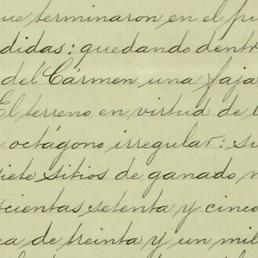 ue terminaron en el pu
didas; quedando dentr
del Cármen una faja
El terreno en virtud de l
octágono irregular: su
iete sitios de ganado m
cientas setenta y cinco
ea de treinta y un mil